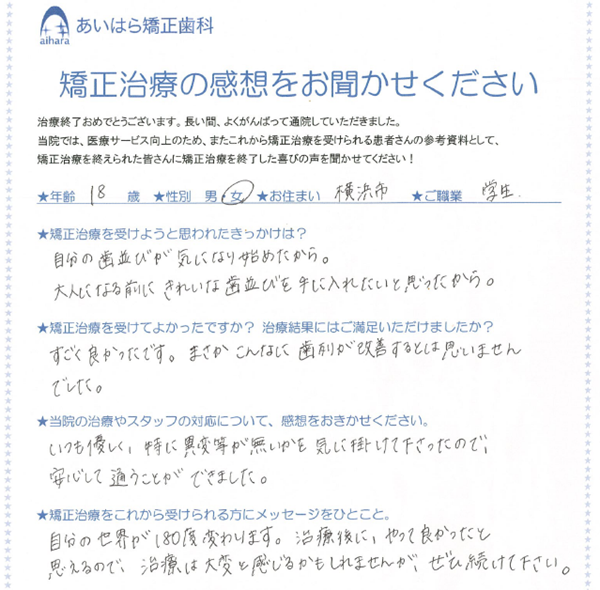 あいはら矯正歯科
aihara
矯正治療の感想をお聞かせください
治療終了おめでとうございます。長い間、よくがんばって通院していただきました。
当院では、医療サービス向上のため、またこれから矯正治療を受けられる患者さんの参考資料として、
矯正治療を終えられた皆さんに矯正治療を終了した喜びの声を聞かせてください！
★年齢 18 歳 ★性別 男・女 ★お住まい 横浜市 ★ご職業 学生.
★矯正治療を受けようと思われたきっかけは？
自分の歯並びが気になり始めたから。
大人になる前にきれいな歯並びを手に入れたいと思ったから。
★矯正治療を受けてよかったですか？ 治療結果にはご満足いただけましたか？
すごく良かったです。まさかこんなに歯列が改善するとは思いません
でした。
★当院の治療やスタッフの対応について、感想をおきかせください。
いつも優しく、特に異変等が無いかを気に掛けて下さったので、
安心して通うことができました。
★矯正治療をこれから受けられる方にメッセージをひとこと。
自分の世界が180度変わります。治療後に、やって良かったと
思えるので、治療は大変と感じるかもしれませんが、ぜひ続けて下さい。